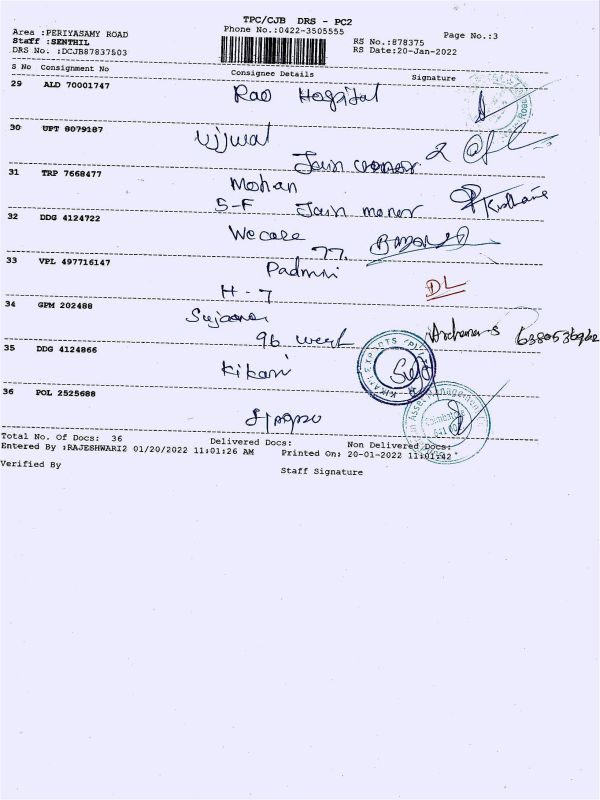 TPC/CJB DRS - PC2
Area :PERIYASAMY ROAD Phone No.:0422-3505555 Page No.:3
Staff :SENTHIL RS No.:878375
DRS No. :DCJB87837503 RS Date:20-Jan-2022
S No Consignment No Consignee Details Signature
29 ALD 70001747 Rao Hospital
30 UPT 8079187 Ujjwal
Jain
31 TRP 7668477 Mohan
5-F Jain manor
32 DDG 4124722 Wecare
77.
33 VPL 497716147 Padmini DL
H-7
34 GPM 202488 Sujaana Archana-S
96 west
35 DDG 4124866 Kikani
KIKANI EXPORTS
36 POL 2525688
Asset Management
Total No. Of Docs: 36 Delivered Docs: Non Delivered Docs:
Entered By :RAJESHWARI2 01/20/2022 11:01:26 AM Printed On: 20-01-2022 11:01:42
Verified By Staff Signature